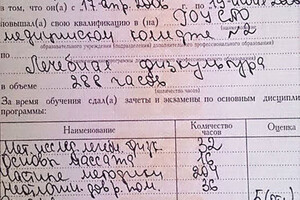 в том, что он(а) с 17 апр. 2006 г. по 19 июня 200
повышал(а) свою квалификацию в (на) ГОУ СПО
медицинском колледже №2
(наименование
образовательного учреждения (подразделения) дополнительного профессионального образования)
по Лечебная физкультура
в объеме 288 часов
(количество часов)
За время обучения сдал(а) зачеты и экзамены по основным дисципли
программы:
Наименование Количество часов Оценка
32
Основы массажа 16
Частные методики 204
Неотлож. довр. пом. 36
5(